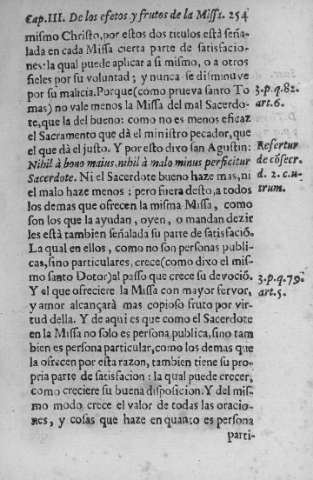 Cap.III. De los efetos y frutos de la Missa. 254
mismo Christo, por estos dos titulos està seña-
lada en cada Missa cierta parte de satisfacio-
nes: la qual puede aplicar a si mismo, o a otros
fieles por su voluntad; y nunca se disminuye
por su malicia. Porque (como prueva santo To
mas) no vale menos la Missa del mal Sacerdo-
te, que la del bueno: como no es menos eficaz
el Sacramento que dà el ministro pecador, que
el que dà el justo. Y por esto dixo san Agustin:
Nihil à bono maius, nihil à malo minus perficitur
Sacerdote. Ni el Sacerdote bueno haze mas, ni
el malo haze menos: pero fuera desto, a todos
los demas que ofrecen la misma Missa, como
son los que la ayudan, oyen, o mandan dezir
les està tambien señalada su parte de satisfació.
La qual en ellos, como no son personas publi-
cas, sino particulares, crece (como dixo el mis-
mo santo Dotor) al passo que crece su devoció.
Y el que ofreciere la Missa con mayor fervor,
y amor alcançarà mas copioso fruto por vir-
tud della. Y de aqui es que como el Sacerdote
en la Missa no solo es persona publica, sino tam
bien es persona particular, como los demas que
la ofrecen por esta razon, tambien tiene su pro-
pria parte de satisfacion: la qual puede crecer,
como creciere su buena disposicion. Y del mis-
mo modo, crece el valor de todas las oracio-
nes, y cosas que haze en quanto es persona
parti-
3. p. q. 82.
art. 6.
Refertur
de cósecr.
d. 2. c. u-
trum.
3. p. q. 79.
art. 5.